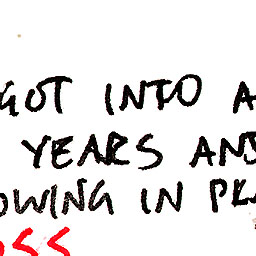 GOT INTO A
YEARS AND
OWING IN PLA
OSS